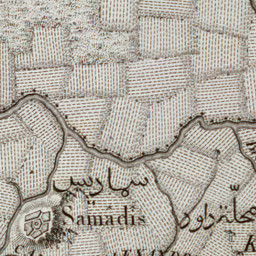 سماديس
Samâdis
محلّة داود